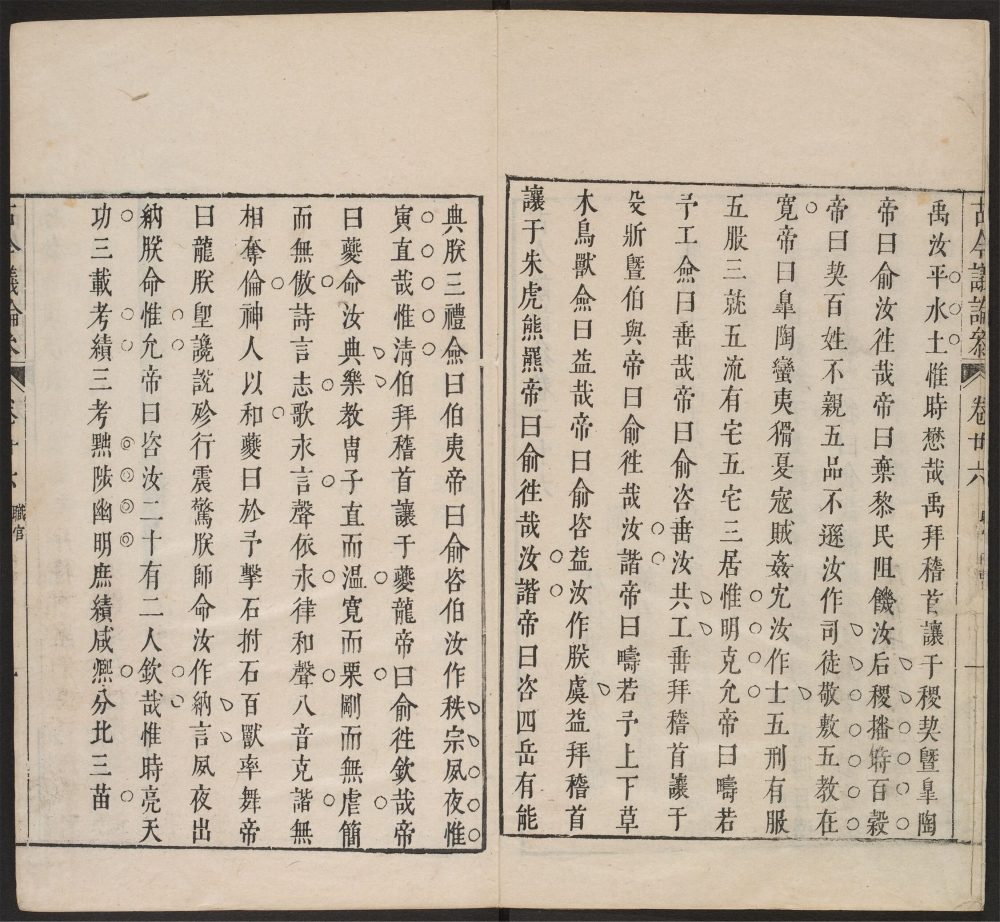 古今議論參
卷廿六
一
禹汝平水土惟時懋哉禹拜稽首讓于稷契曁臯陶
帝曰俞汝徃哉帝曰棄黎民阻饑汝后稷播時百穀
帝曰契百姓不親五品不遜汝作司徒敬敷五教在
寬帝曰臯陶蠻夷猾夏寇賊姦宄汝作士五刑有服
五服三就五流有宅五宅三居惟明克允帝曰疇若
予工僉曰垂哉帝曰俞咨垂汝共工垂拜稽首讓于
殳斨曁伯與帝曰俞徃哉汝諧帝曰疇若予上下草
木鳥獸僉曰益哉帝曰俞咨益汝作朕虞益拜稽首
讓于朱虎熊羆帝曰俞徃哉汝諧帝曰咨四岳有能
典朕三禮僉曰伯夷帝曰俞咨伯汝作秩宗夙夜惟
寅直哉惟淸伯拜稽首讓于夔龍帝曰俞徃欽哉帝
曰夔命汝典樂教胄子直而溫寬而栗剛而無虐簡
而無傲詩言志歌永言聲依永律和聲八音克諧無
相奪倫神人以和夔曰於予擊石拊石百獸率舞帝
曰龍朕堲讒說殄行震驚朕師命汝作納言夙夜出
納朕命惟允帝曰咨汝二十有二人欽哉惟時亮天
功三載考績三考黜陟幽明庶績咸熈分北三苗
職官